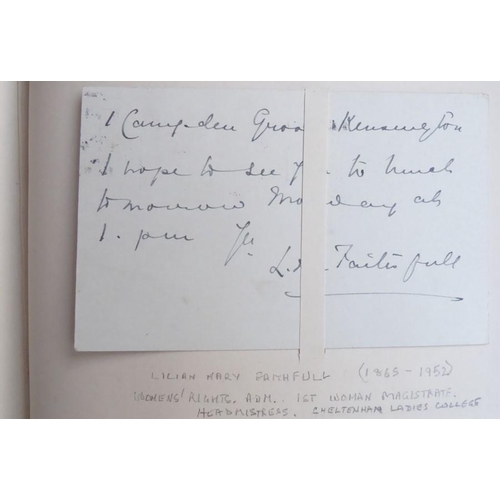 1 Campden Gro Kensington
I hope to see y to lunch
tomorrow Mo day at
1. pm
L. Faithfull
LILIAN MARY FAITHFULL (1865-1952)
WOMENS' RIGHTS. ADM. 1ST WOMAN MAGISTRATE.
HEADMISTRESS. CHELTENHAM LADIES COLLEGE